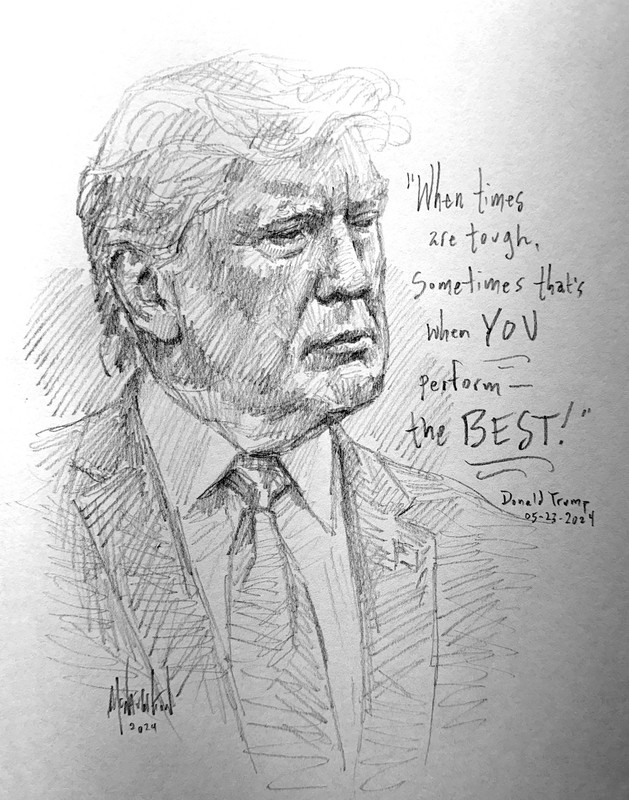 "When times
are tough,
Sometimes that's
when YOU
perform—
the BEST!"
Donald Trump
05-23-2024
2024